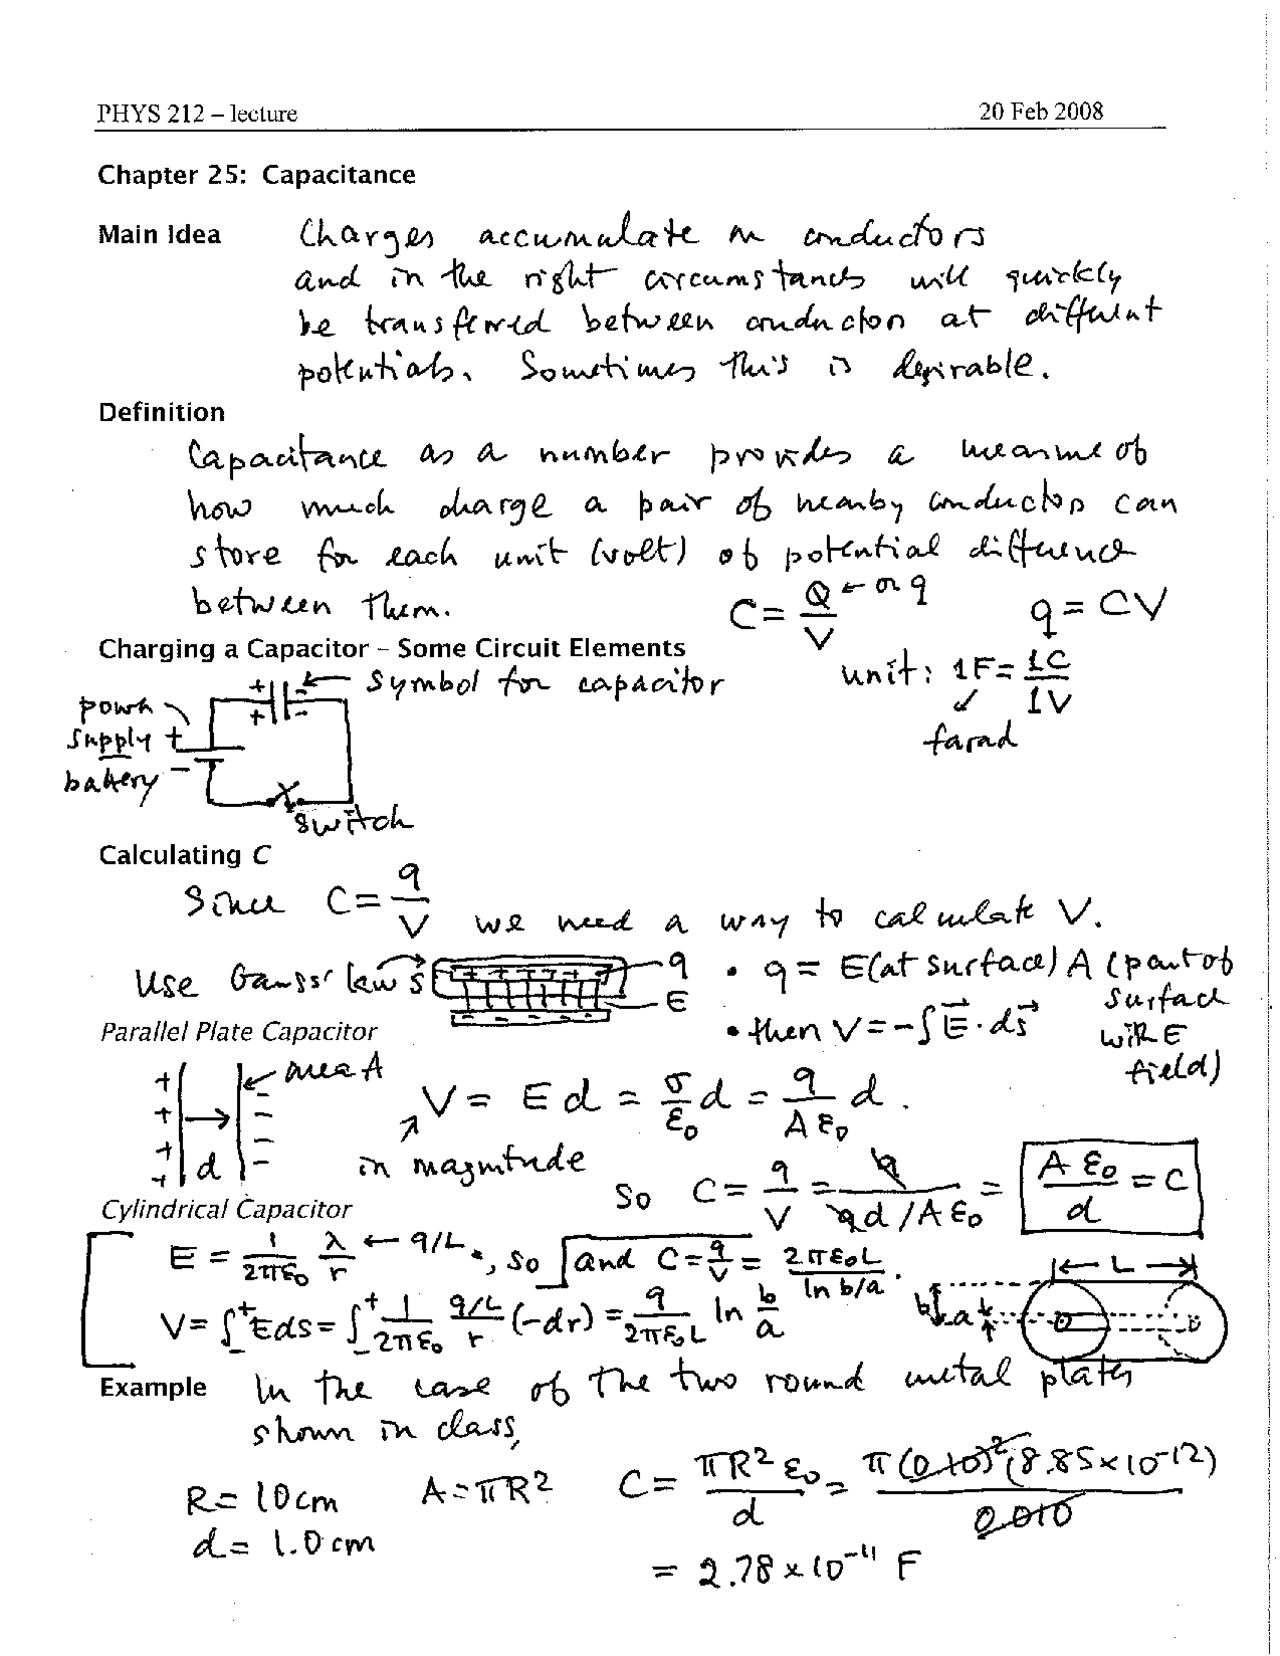 PHYS 212 – lecture 20 Feb 2008
Chapter 25: Capacitance
Main Idea Charges accumulate on conductors
and in the right circumstances will quickly
be transferred between conductors at different
potentials. Sometimes this is desirable.
Definition
Capacitance as a number provides a measure of
how much charge a pair of nearby conductors can
store for each unit (volt) of potential difference
between them. C = Q/V ← or q q = CV
Charging a Capacitor – Some Circuit Elements
← symbol for capacitor unit: 1F = 1C/1V
farad
power supply
battery
+ -
+ -
+
-
switch
Calculating C
Since C = q/V we need a way to calculate V.
Use Gauss' law's q E • q = E(at surface) A (part of surface with E field)
• then V = -∫E⃗·ds⃗
Parallel Plate Capacitor
area A
d
V = Ed = σ/ε₀ d = q/Aε₀ d.
in magnitude
so C = q/V = q/qd/Aε₀ = Aε₀/d = C
Cylindrical Capacitor
E = 1/2πε₀ λ/r ← q/L ., so and C = q/V = 2πε₀L/ln b/a.
V = ∫₋⁺Eds = ∫₋⁺ 1/2πε₀ q/L/r (-dr) = q/2πε₀L ln b/a
← L →
b a
Example In the case of the two round metal plates
shown in class,
R = 10cm A = πR² C = πR²ε₀/d = π(0.10)²(8.85×10⁻¹²)/0.010
d = 1.0 cm
= 2.78 × 10⁻¹¹ F